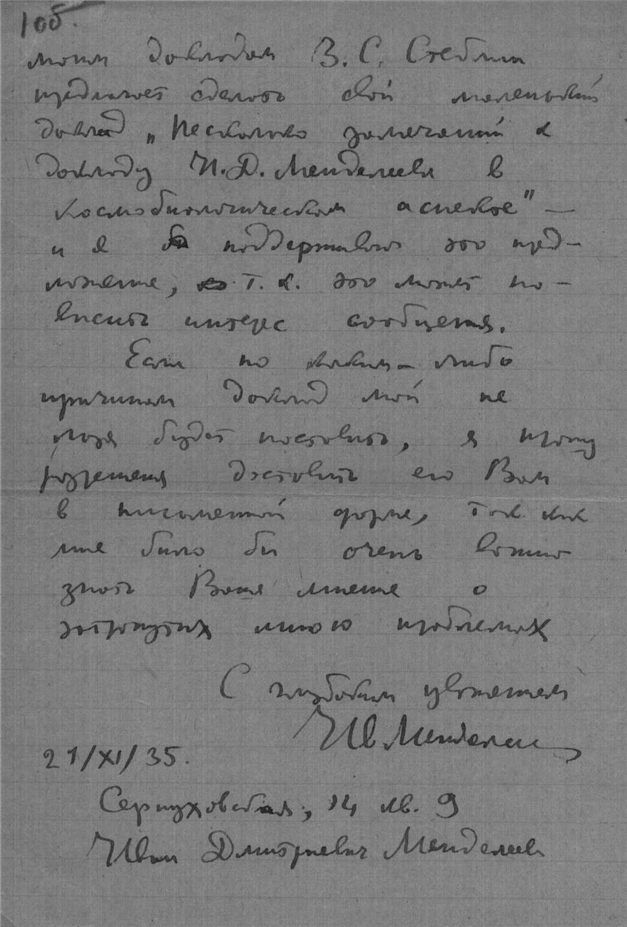 10б.
моим докладом З. С. Стеблин
предлагает сделать свой маленький
доклад „Несколько замечаний к
докладу И. Д. Менделеева в
космобиологическом аспекте" —
и я бы поддерживаю это пред-
ложение, т. к. это может по-
высить интерес сообщения.
Если по каким-либо
причинам доклад мой не
будет поставить, я прошу
разрешения доставить его Вам
в письменной форме, так как
мне было бы очень важно
знать Ваше мнение о
затронутых мною проблемах
С глубоким уважением
Ив Менделеев
21/XI/35.
Серпуховская, 14 кв. 9
Иван Дмитриевич Менделеев